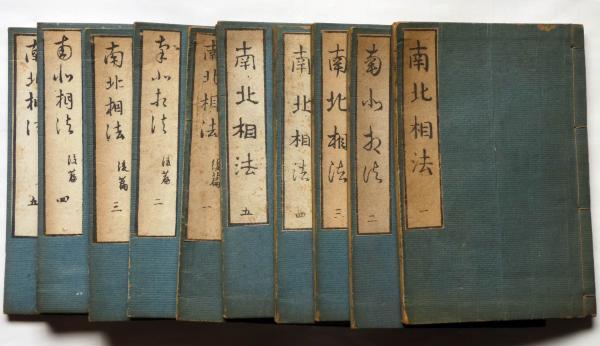 南北相法 一
南北相法 二
南北相法 三
南北相法 四
南北相法 五
南北相法 後篇 一
南北相法 後篇 二
南北相法 後篇 三
南北相法 後篇 四
南北相法 五